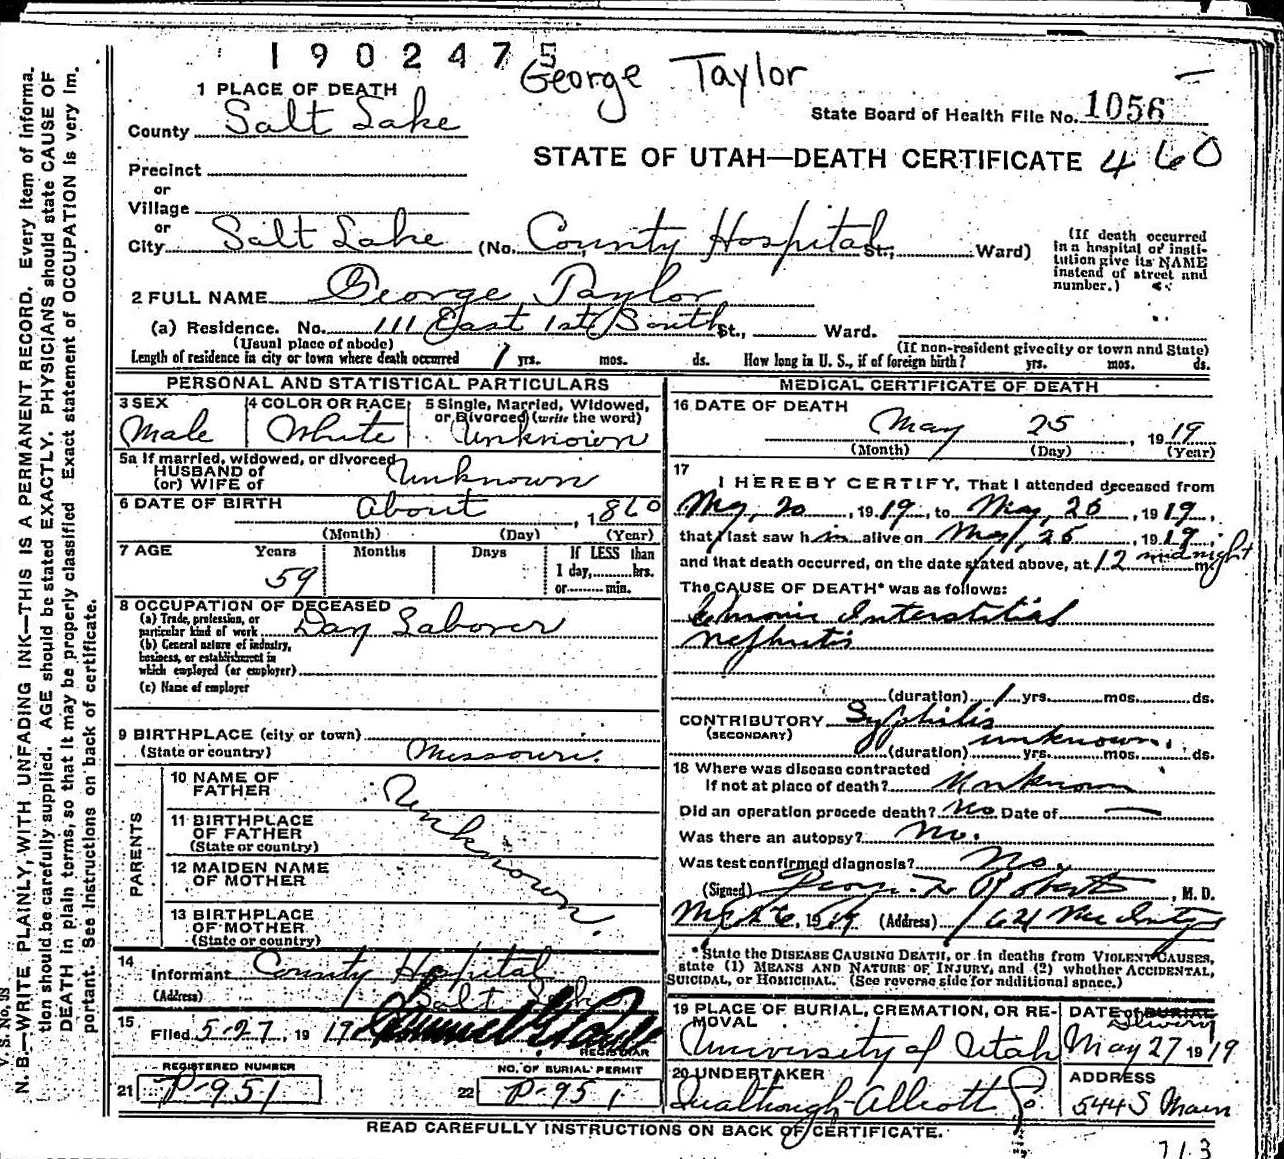 1902475
George Taylor
1 PLACE OF DEATH
State Board of Health File No. 1056
County Salt Lake
STATE OF UTAH—DEATH CERTIFICATE 460
Precinct
or
Village
or
City Salt Lake (No. County Hospital St., Ward)
(If death occurred in a hospital or institution give its NAME instead of street and number.)
2 FULL NAME George Taylor
(a) Residence. No. 111 East 1st South St., Ward.
(Usual place of abode)
(If non-resident give city or town and State)
Length of residence in city or town where death occurred 1 yrs. mos. ds. How long in U. S., if of foreign birth? yrs. mos. ds.
PERSONAL AND STATISTICAL PARTICULARS
3 SEX Male
4 COLOR OR RACE White
5 Single, Married, Widowed, or Divorced (write the word) Unknown
5a If married, widowed, or divorced
HUSBAND of
(or) WIFE of Unknown
6 DATE OF BIRTH About , 1860
(Month) (Day) (Year)
7 AGE Years Months Days If LESS than
59 1 day, hrs.
or min.
8 OCCUPATION OF DECEASED
(a) Trade, profession, or particular kind of work Day Laborer
(b) General nature of industry, business, or establishment in which employed (or employer)
(c) Name of employer
9 BIRTHPLACE (city or town)
(State or country) Missouri.
PARENTS
10 NAME OF FATHER
11 BIRTHPLACE OF FATHER (State or country)
12 MAIDEN NAME OF MOTHER
13 BIRTHPLACE OF MOTHER (State or country)
Unknown.
14 Informant County Hospital
(Address) Salt Lake
15 Filed 5-27, 19
REGISTRAR
REGISTERED NUMBER
21 P-951
NO. OF BURIAL PERMIT
22 P-951
MEDICAL CERTIFICATE OF DEATH
16 DATE OF DEATH
May 25, 1919
(Month) (Day) (Year)
17
I HEREBY CERTIFY, That I attended deceased from
May, 20, 1919, to May, 25, 1919,
that I last saw him alive on May, 25, 1919,
and that death occurred, on the date stated above, at 12 midnight m.
The CAUSE OF DEATH* was as follows:
Chronic Interstitial
Nephritis
(duration) 1 yrs. mos. ds.
CONTRIBUTORY Syphilis
(SECONDARY) unknown.
(duration) yrs. mos. ds.
18 Where was disease contracted
If not at place of death? Unknown
Did an operation precede death? No Date of —
Was there an autopsy? No.
Was test confirmed diagnosis? No.
(Signed) Roberts, M. D.
May 26, 1919 (Address) 621 McIntyre
*State the DISEASE CAUSING DEATH, or in deaths from VIOLENT CAUSES, state (1) MEANS AND NATURE OF INJURY, and (2) whether ACCIDENTAL, SUICIDAL, or HOMICIDAL. (See reverse side for additional space.)
19 PLACE OF BURIAL, CREMATION, OR REMOVAL
University of Utah
DATE of BURIAL
Delivery
May 27 1919
20 UNDERTAKER
ADDRESS
544 S Main
READ CAREFULLY INSTRUCTIONS ON BACK OF CERTIFICATE.
713
N. B.—WRITE PLAINLY, WITH UNFADING INK—THIS IS A PERMANENT RECORD. Every item of information should be carefully supplied. AGE should be stated EXACTLY. PHYSICIANS should state CAUSE OF DEATH in plain terms, so that it may be properly classified. Exact statement of OCCUPATION is very important. See instructions on back of certificate.